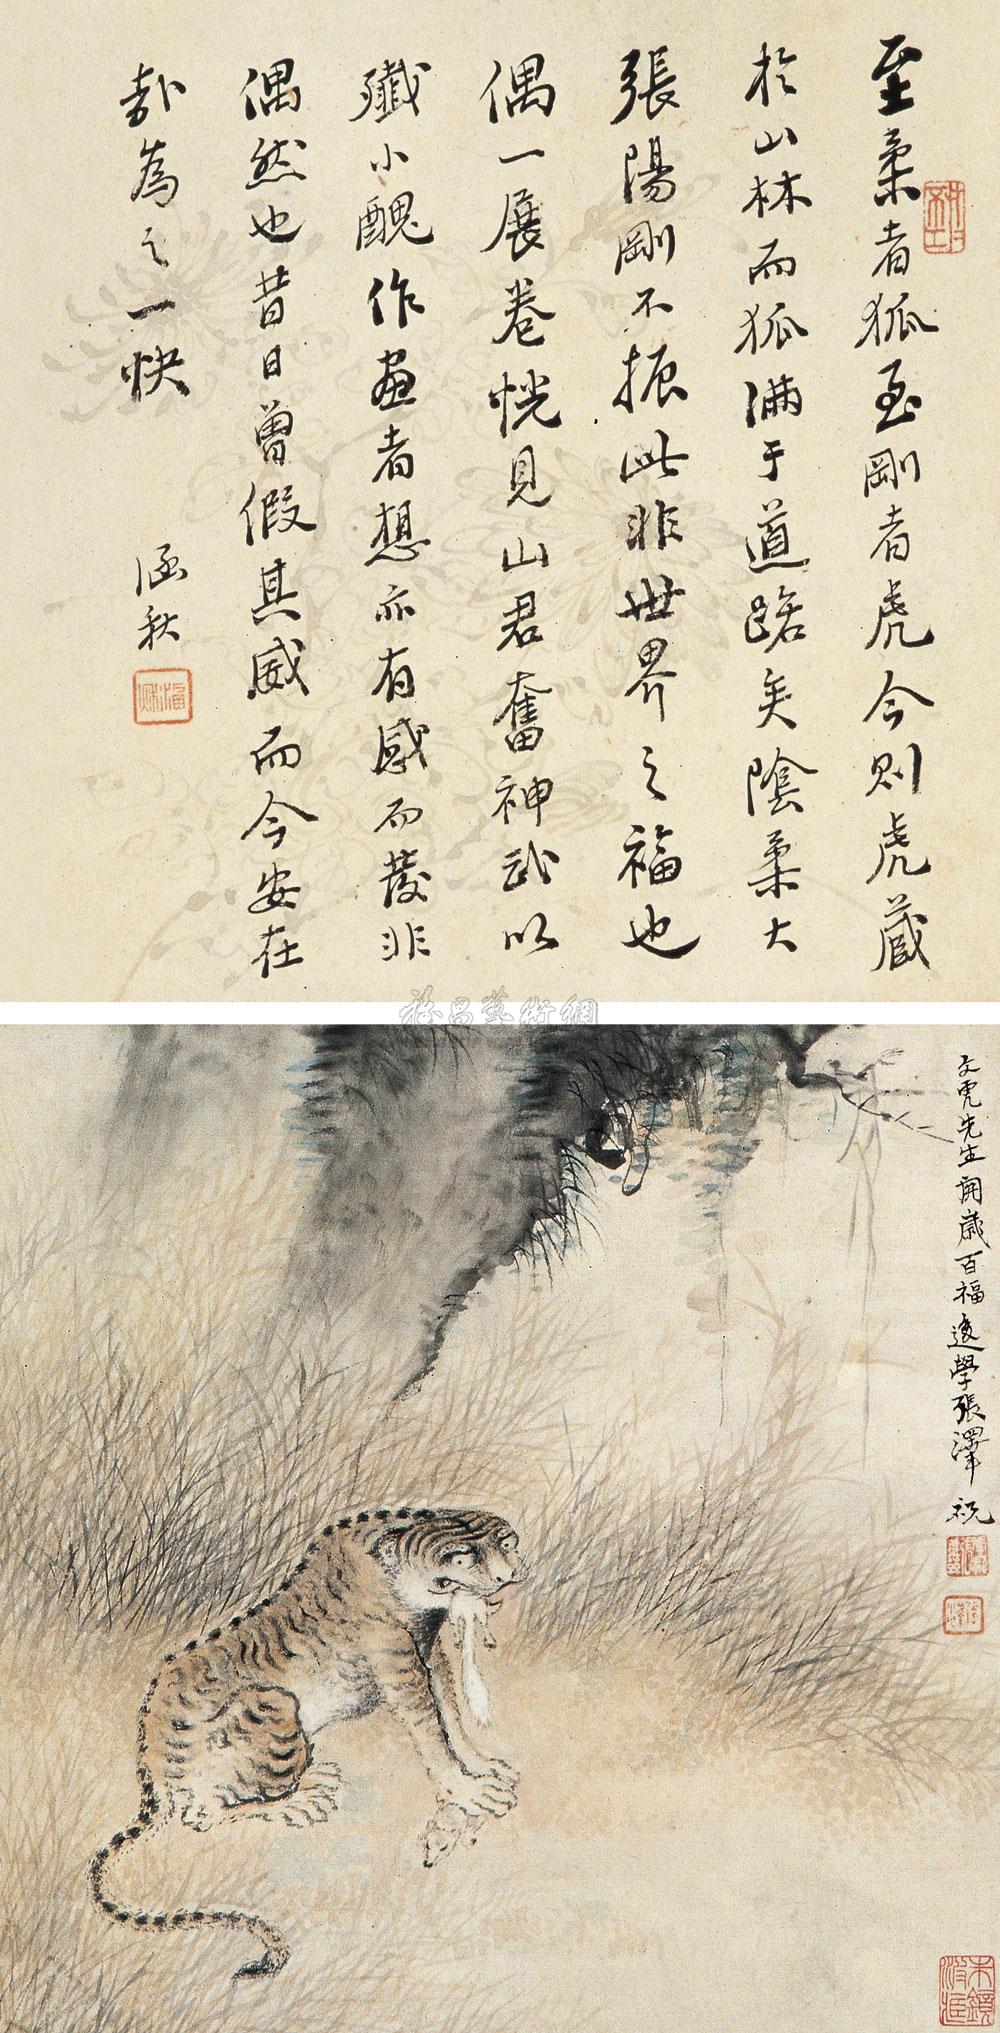 至柔者狐至剛者虎今則虎藏
於山林而狐滿于道路矣陰柔大
張陽剛不振此非世界之福也
偶一展卷恍見山君奮神武以
殲小醜作畫者想亦有感而發非
偶然也昔日曾假其威而今安在
哉為之一快
涵秋
文虎先生開歲百福後學張澤祝